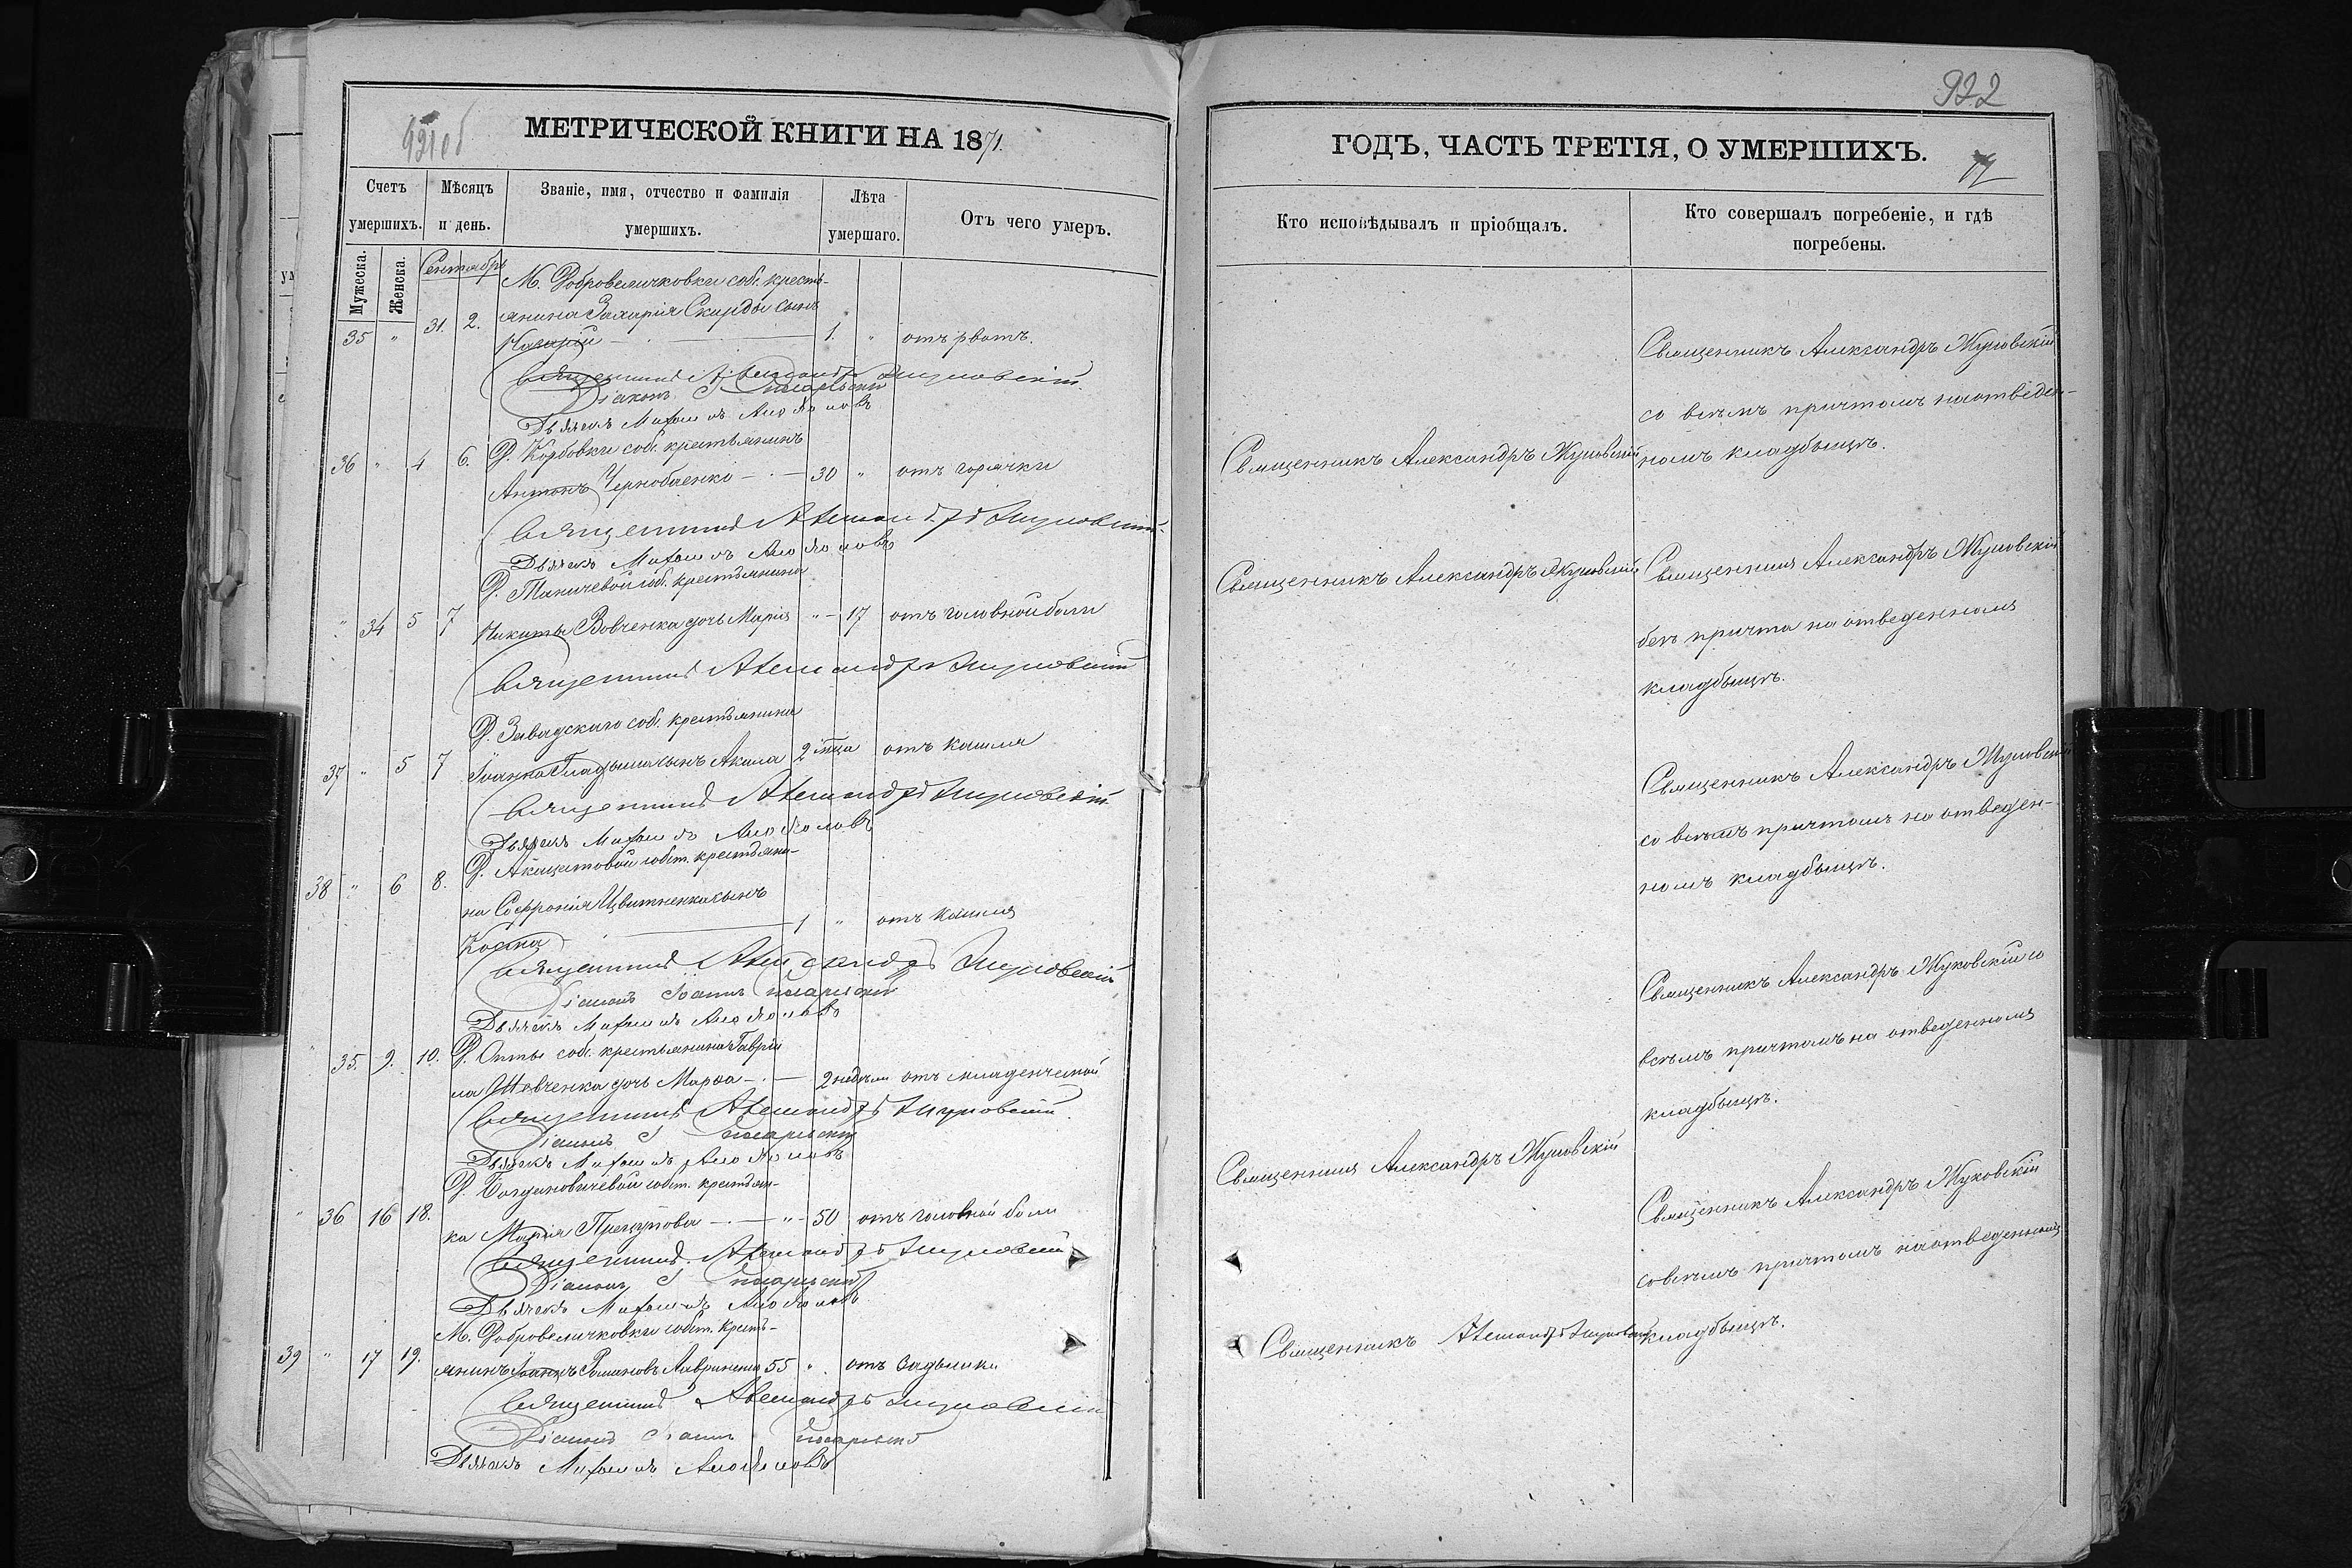 921об
МЕТРИЧЕСКОЙ КНИГИ НА 1871.
Счетъ умершихъ.
Мужеска.
Женска.
Мѣсяцъ и день.
Званіе, имя, отчество и фамилія умершихъ.
Лѣта умершаго.
Отъ чего умеръ.
Сентябрь
М. Добровеличковки соб. кресть-
35 " 31. 2. янина Захарія Скирды сынъ
Назарій 1. " отъ рвотъ.
Священникъ Александръ Жуковскій.
Діаконъ
Дьячекъ Михаилъ
36 " 4 6. Д. Корбовки соб. крестьянинъ
Антонъ Чернобаенко 30 " отъ горячки
Священникъ Александръ Жуковскій
Дьячекъ Михаилъ
соб. крестьянина
" 34 5 7 Никиты Вовченка дочь Марія " 17 отъ головной боли
Священникъ Александръ Жуковскій
Д. Завадскаго соб. крестьянина
37 " 5 7 Іоанна Гладыша сынъ Акила 2 мца отъ кашля
Священникъ Александръ Жуковскій
Дьячекъ Михаилъ
Д. собст. крестьяни-
38 " 6 8. на Софронія сынъ
Косма 1 " отъ кашля
Священникъ Александръ Жуковскій
Діаконъ Іоаннъ
Дьячекъ Михаилъ
" 35. 9. 10. Д. Опты соб. крестьянина Гаврі
ла Шевченка дочь Марѳа 2 недѣли отъ младенческой
Священникъ Александръ Жуковскій.
Діаконъ І
Дьячекъ Михаилъ
Д. Богдановичевой собст. крестьян-
" 36 16 18. ка Марія " 50 отъ головной боли
Священникъ Александръ Жуковскій
Діаконъ І
Дьячекъ Михаилъ
М. Добровеличковки собст. кресть-
39 " 17 19. янинъ Іоаннъ Романовъ 55 " отъ задышки
Священникъ Александръ Жуковскій
Діаконъ Іоаннъ
Дьячекъ Михаилъ
922
ГОДЪ, ЧАСТЬ ТРЕТІЯ, О УМЕРШИХЪ.
Кто исповѣдывалъ и пріобщалъ.
Кто совершалъ погребеніе, и гдѣ погребены.
Священникъ Александръ Жуковскій
со всѣмъ причтомъ на отведен-
номъ кладбыщѣ.
Священникъ Александръ Жуковскій
Священникъ Александръ Жуковскій
Священникъ Александръ Жуковскій
безъ причта на отведенномъ
кладбыщѣ.
Священникъ Александръ Жуковскій
со всѣмъ причтомъ на отведен-
номъ кладбыщѣ.
Священникъ Александръ Жуковскій со
всѣмъ причтомъ на отведенномъ
кладбыщѣ.
Священникъ Александръ Жуковскій
Священникъ Александръ Жуковскій
со всѣмъ причтомъ на отведенномъ
кладбыщѣ.
Священникъ Александръ Жуковскій